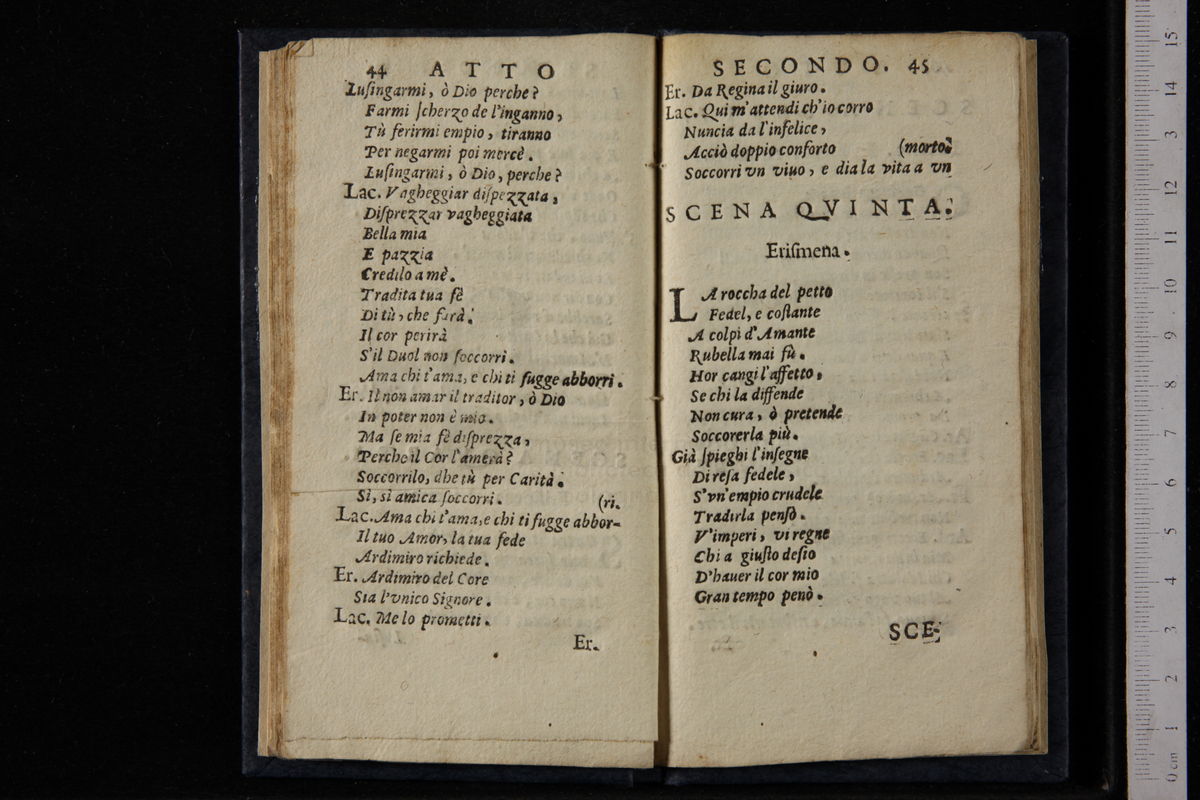 44 ATTO
Luſingarmi, ò Dio perche?
Farmi ſcherzo de l'inganno,
Tù ferirmi empio, tiranno
Per negarmi poi mercè.
Luſingarmi, ò Dio, perche?
Lac. Vagheggiar diſpezzata,
Diſprezzar vagheggiata
Bella mia
E pazzia
Credilo a mè.
Tradita tua fè
Di tù, che farà?
Il cor perirà
S'il Duol non ſoccorri.
Ama chi t'ama, e chi ti fugge abborri.
Er. Il non amar il traditor, ò Dio
In poter non è mio.
Ma ſe mia fè diſprezza,
Perche il Cor l'amerà?
Soccorrilo, dhe tù per Carità.
Sì, sì amica ſoccorri. (ri.
Lac. Ama chi t'ama, e chi ti fugge abbor-
Il tuo Amor, la tua fede
Ardimiro richiede.
Er. Ardimiro del Core
Sia l'vnico Signore.
Lac. Me lo prometti.
Er.
SECONDO. 45
Er. Da Regina il giuro.
Lac. Qui m'attendi ch'io corro
Nuncia da l'infelice,
Acciò doppio conforto (morto.
Soccorri vn viuo, e dia la vita a vn
SCENA QVINTA.
Eriſmena.
LA roccha del petto
Fedel, e coſtante
A colpi d'Amante
Rubella mai fù.
Hor cangi l'affetto,
Se chi la diffende
Non cura, ò pretende
Soccorerla più.
Già ſpieghi l'inſegne
Di reſa fedele,
S'vn'empio crudele
Tradirla pensò.
V'imperi, vi regne
Chi a giuſto deſio
D'hauer il cor mio
Gran tempo penò.
SCE-
15
14
13
12
11
10
9
8
7
6
5
4
3
2
1
0 cm